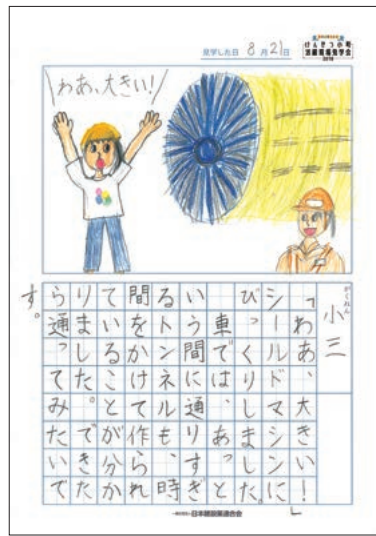 見学した日 8月21日
けんせつ小町
活躍現場見学会
わあ、大きい!
がくねん
小三
「わあ、大きい!」
シールドマシンに
びっくりしました。
車では、あっと
いう間に通りすぎ
るトンネルも、時
間をかけて作られ
ていることが分か
りました。できた
ら通ってみたいで
す。
日本建設業連合会